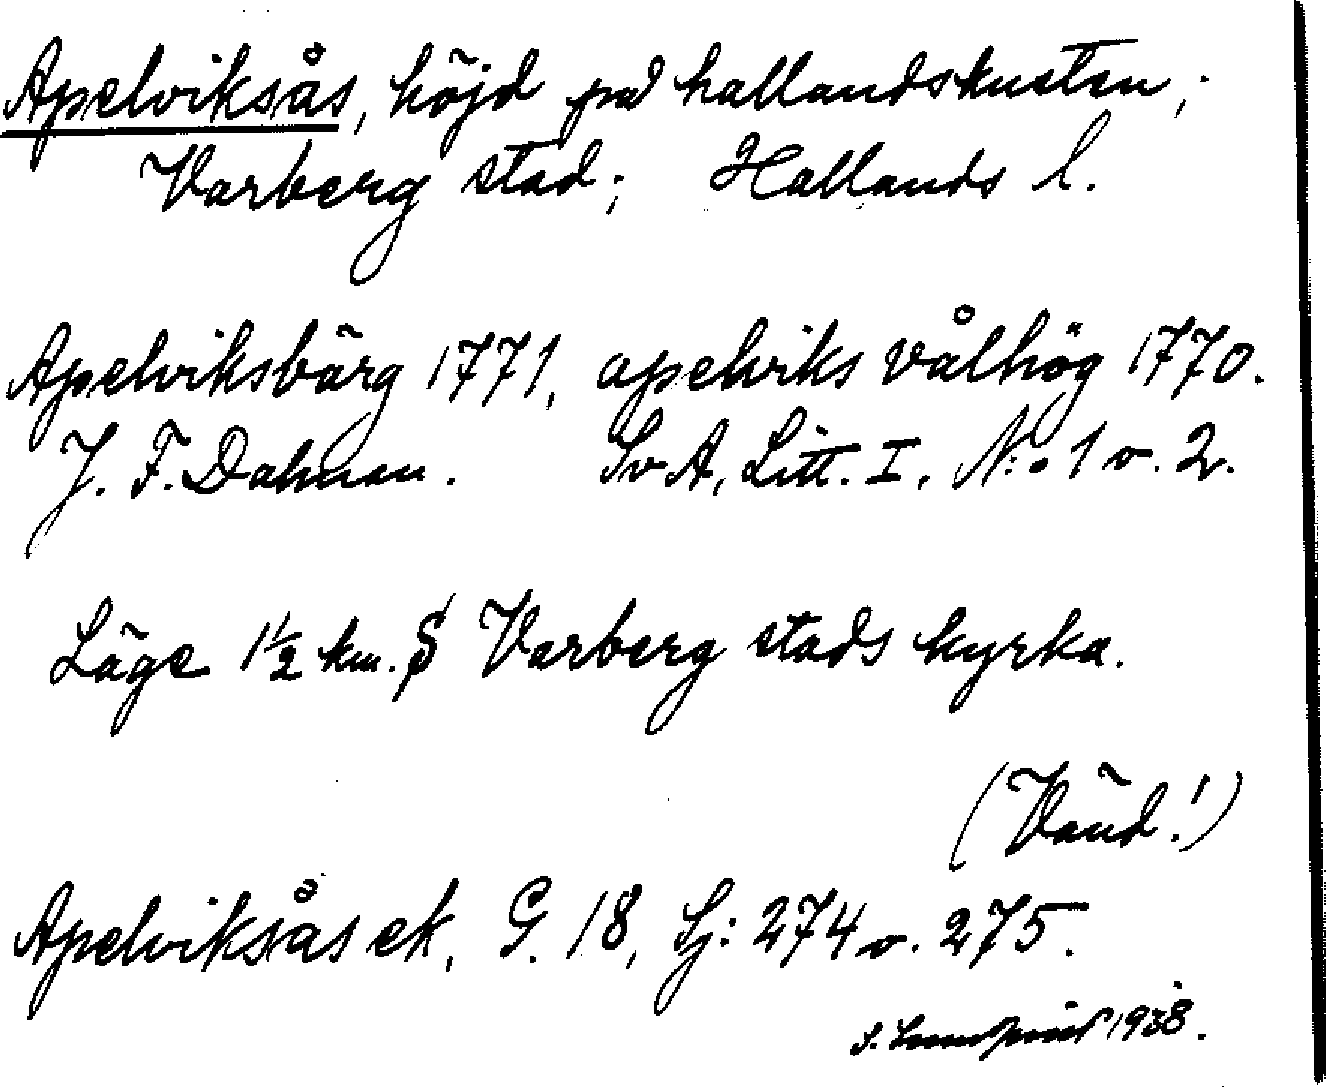 Apelviksås, höjd på hallandskusten,;
Varberg stad; Hallands l.
Apelviksbärg 1771, apelviks vålhög 1770.
J. F. Dahman. Sv A, Litt. I, N:o 1 o. 2.
Läge 1½ km. S Varberg stads kyrka.
(Vänd!)
Apelviksås ek, G. 18, Sj: 274 o. 275.
S. 1938.